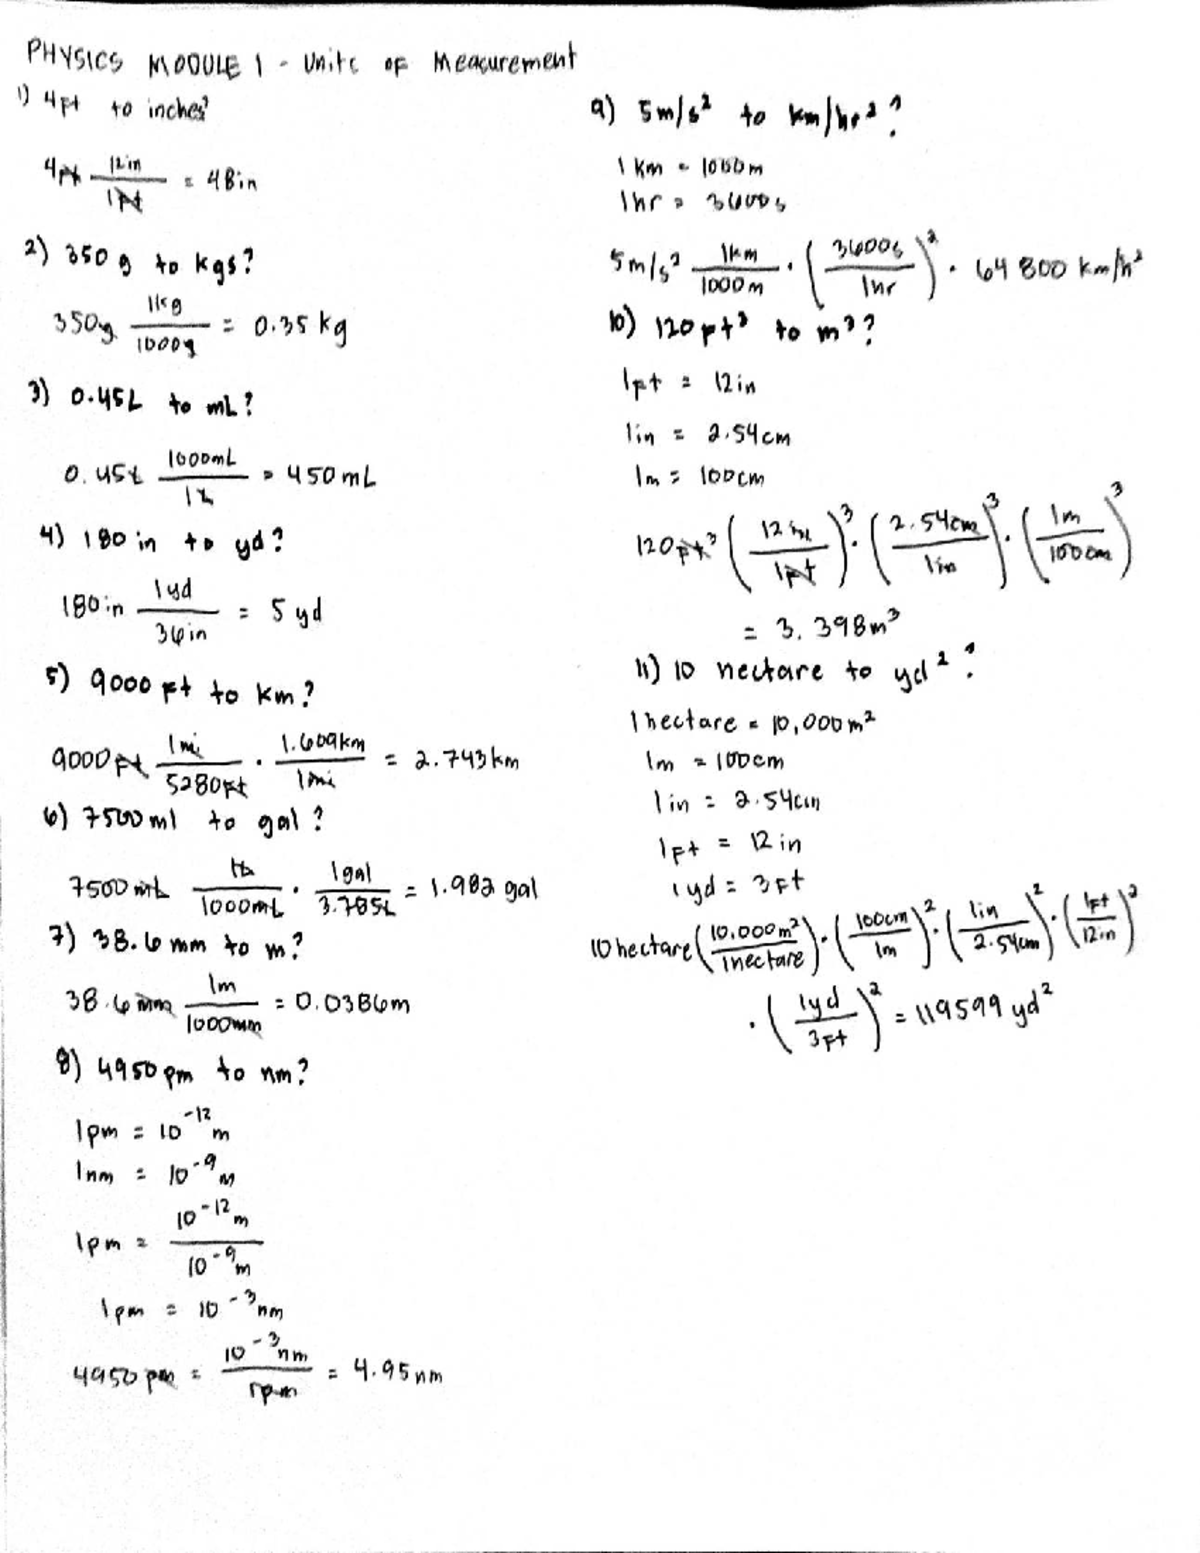 PHYSICS MODULE 1 - Units of Measurement
1) 4ft to inches?
4ft 12in / 1ft = 48in
2) 350 g to kgs?
350g 1kg / 1000g = 0.35 kg
3) 0.45L to mL?
0.45L 1000mL / 1L = 450 mL
4) 180 in to yd?
180in 1yd / 36in = 5 yd
5) 9000 ft to km?
9000ft 1mi / 5280ft · 1.609km / 1mi = 2.743km
6) 7500 ml to gal?
7500 mL 1L / 1000mL · 1gal / 3.785L = 1.982 gal
7) 38.6 mm to m?
38.6 mm 1m / 1000mm = 0.0386m
8) 4950 pm to nm?
1pm = 10^-12 m
1nm = 10^-9 m
1pm = 10^-12 m / 10^-9 m
1pm = 10^-3 nm
4950 pm = 10^-3 nm / 1pm = 4.95 nm
9) 5m/s² to km/hr²?
1 km = 1000m
1hr = 3600s
5m/s² 1km / 1000m · (3600s / 1hr)² = 64 800 km/h²
10) 120 ft³ to m³?
1ft = 12in
1in = 2.54cm
1m = 100cm
120ft³ (12in / 1ft)³ · (2.54cm / 1in)³ · (1m / 100cm)³
= 3.398m³
11) 10 hectare to yd²?
1 hectare = 10,000m²
1m = 100cm
1in = 2.54cm
1ft = 12in
1yd = 3ft
10 hectare (10,000m² / 1hectare) · (100cm / 1m)² · (1in / 2.54cm)² · (1ft / 12in)²
· (1yd / 3ft)² = 119599 yd²